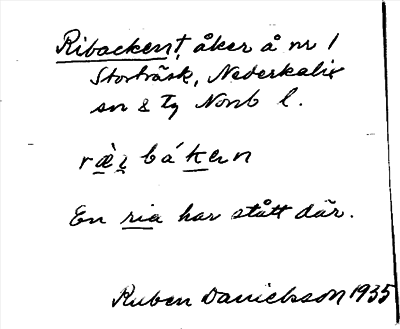 Ribacken†, åker å nr 1
Storträsk, Nederkalix
sn & tg Norrb l.
ræ̀ɪ bákɐn
En ria har stått där.
Ruben Danielsson 1935